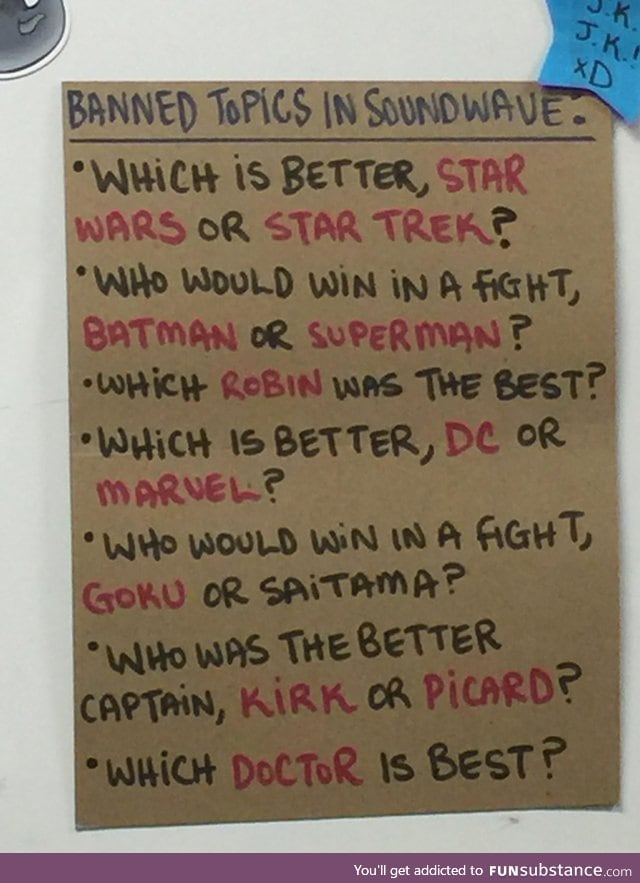 J.K.
J.K.!
xD
BANNED TOPICS IN SOUNDWAVE:
•WHICH IS BETTER, STAR
WARS OR STAR TREK?
•WHO WOULD WIN IN A FIGHT,
BATMAN OR SUPERMAN?
•WHICH ROBIN WAS THE BEST?
•WHICH IS BETTER, DC OR
MARVEL?
•WHO WOULD WIN IN A FIGHT,
GOKU OR SAITAMA?
•WHO WAS THE BETTER
CAPTAIN, KIRK OR PICARD?
•WHICH DOCTOR IS BEST?
You'll get addicted to FUNsubstance.com